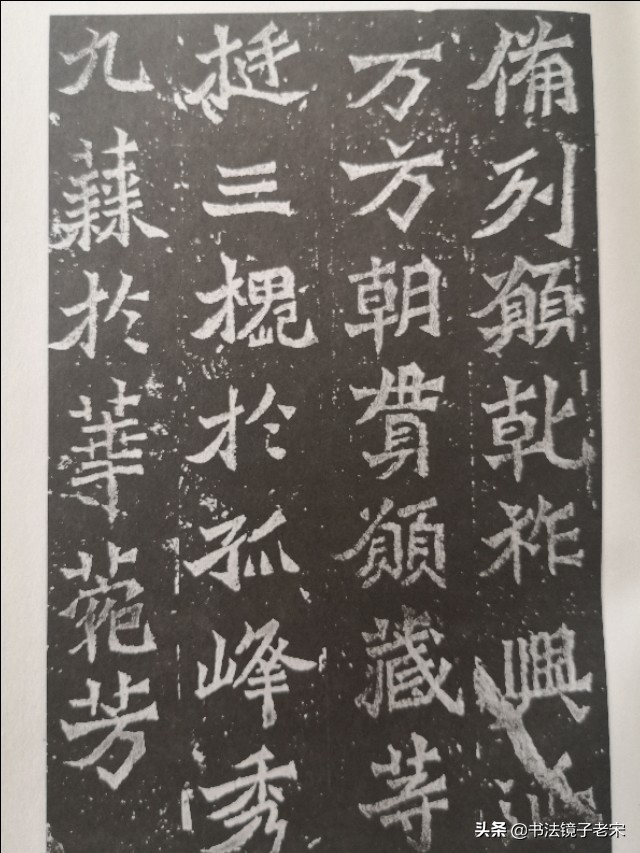 備列願乾祚興
万方朝貫願藏等
挺三槐於孤峰秀
九蕀於華菀芳
头条 @书法镜子老宋